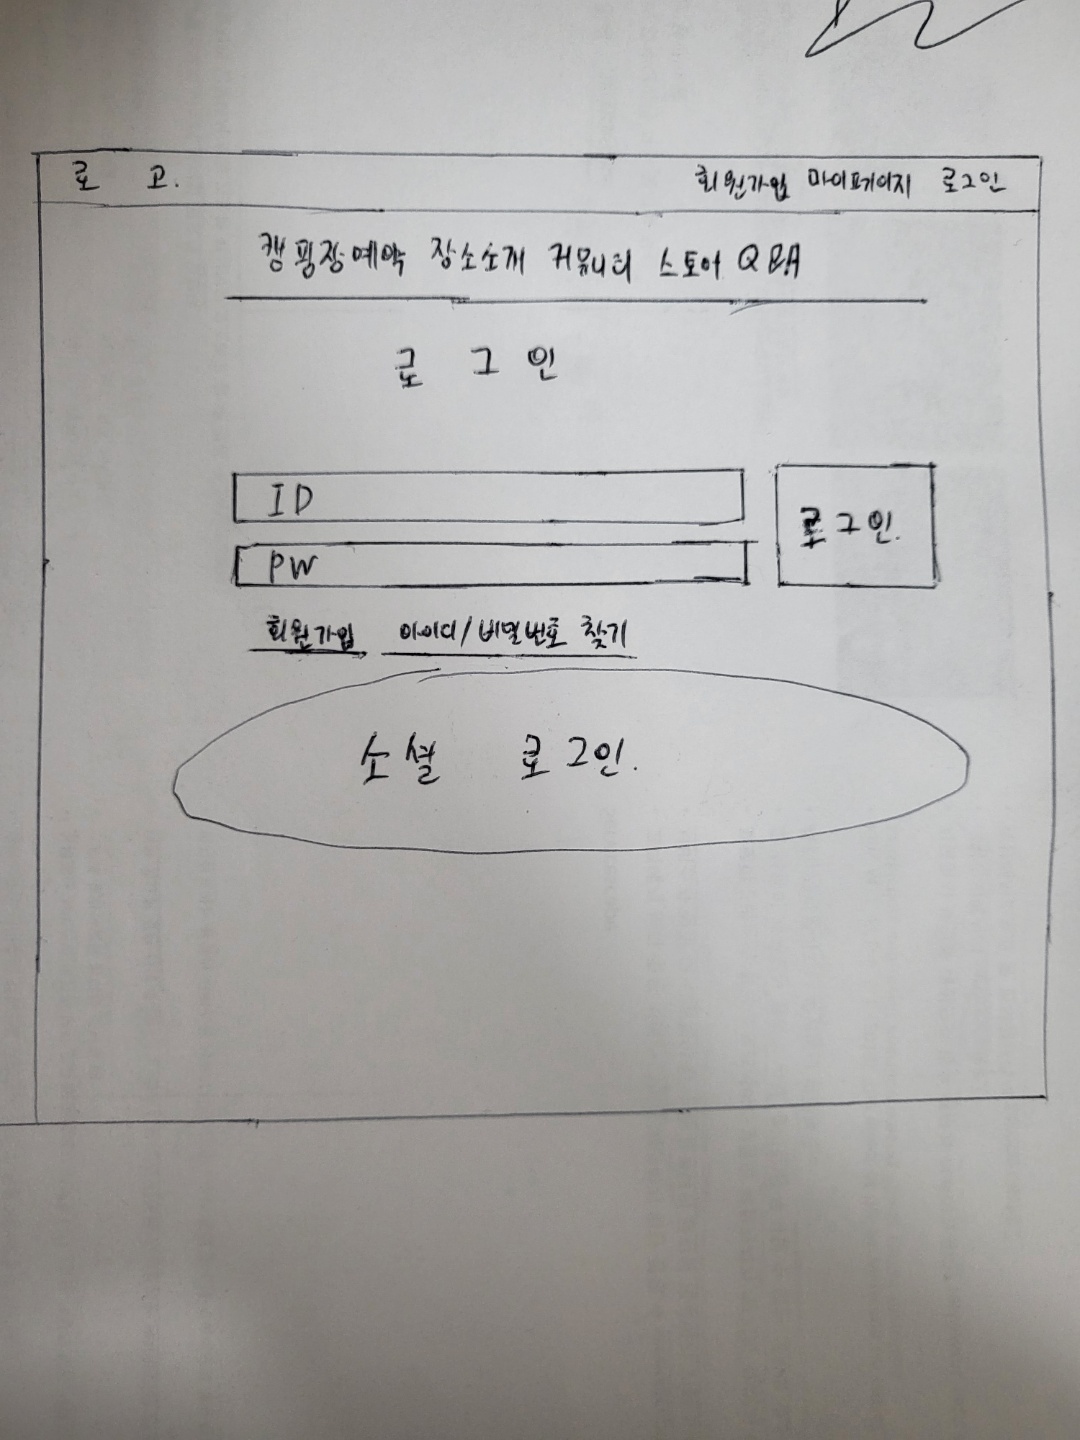 로 고.
회원가입 마이페이지 로그인
캠핑장예약 장소소개 커뮤니티 스토어 Q&A
로 그 인
ID
로그인.
PW
회원가입 아이디/비밀번호 찾기
소셜 로그인.